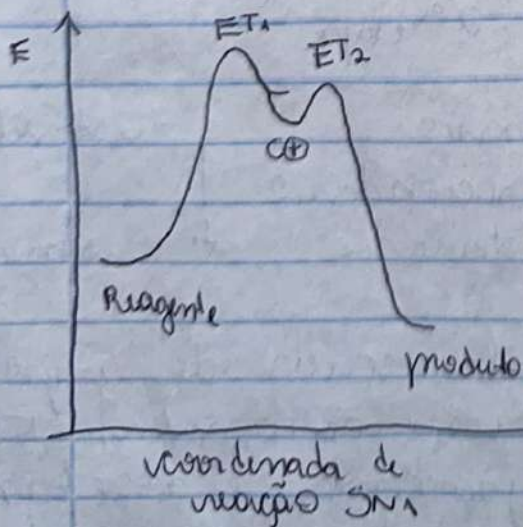 E
ET1
ET2
C⊕
Reagente
produto
coordenada de
reação SN1